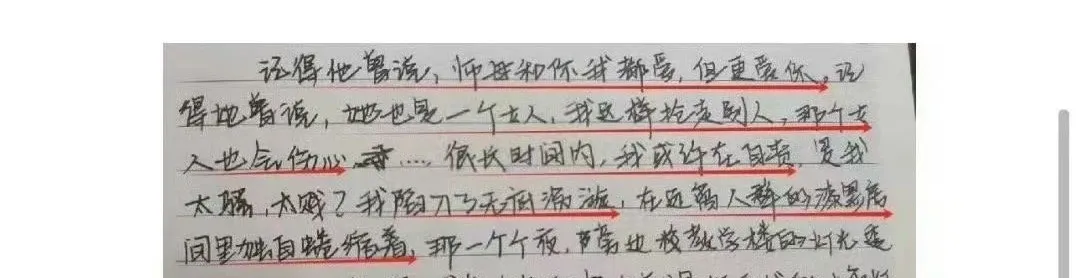 记得他曾说，师母和你我都爱，但更爱你。记
得她曾说，她也是一个女人，我这样抢走别人，那个女
人也会伤心……很长时间内，我或许在自责，是我
太骚，太贱？我陷入了无底漩涡，在远离人群的漆黑房
间里独自蜷缩着，那一个个夜，窗也被教学楼的灯光透